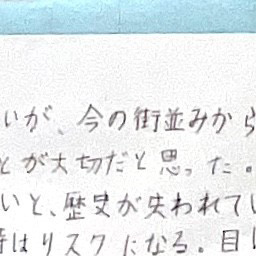 いが、今の街並みから
とが大切だと思った。
いと、歴史が失われてい
時はリスクになる。目